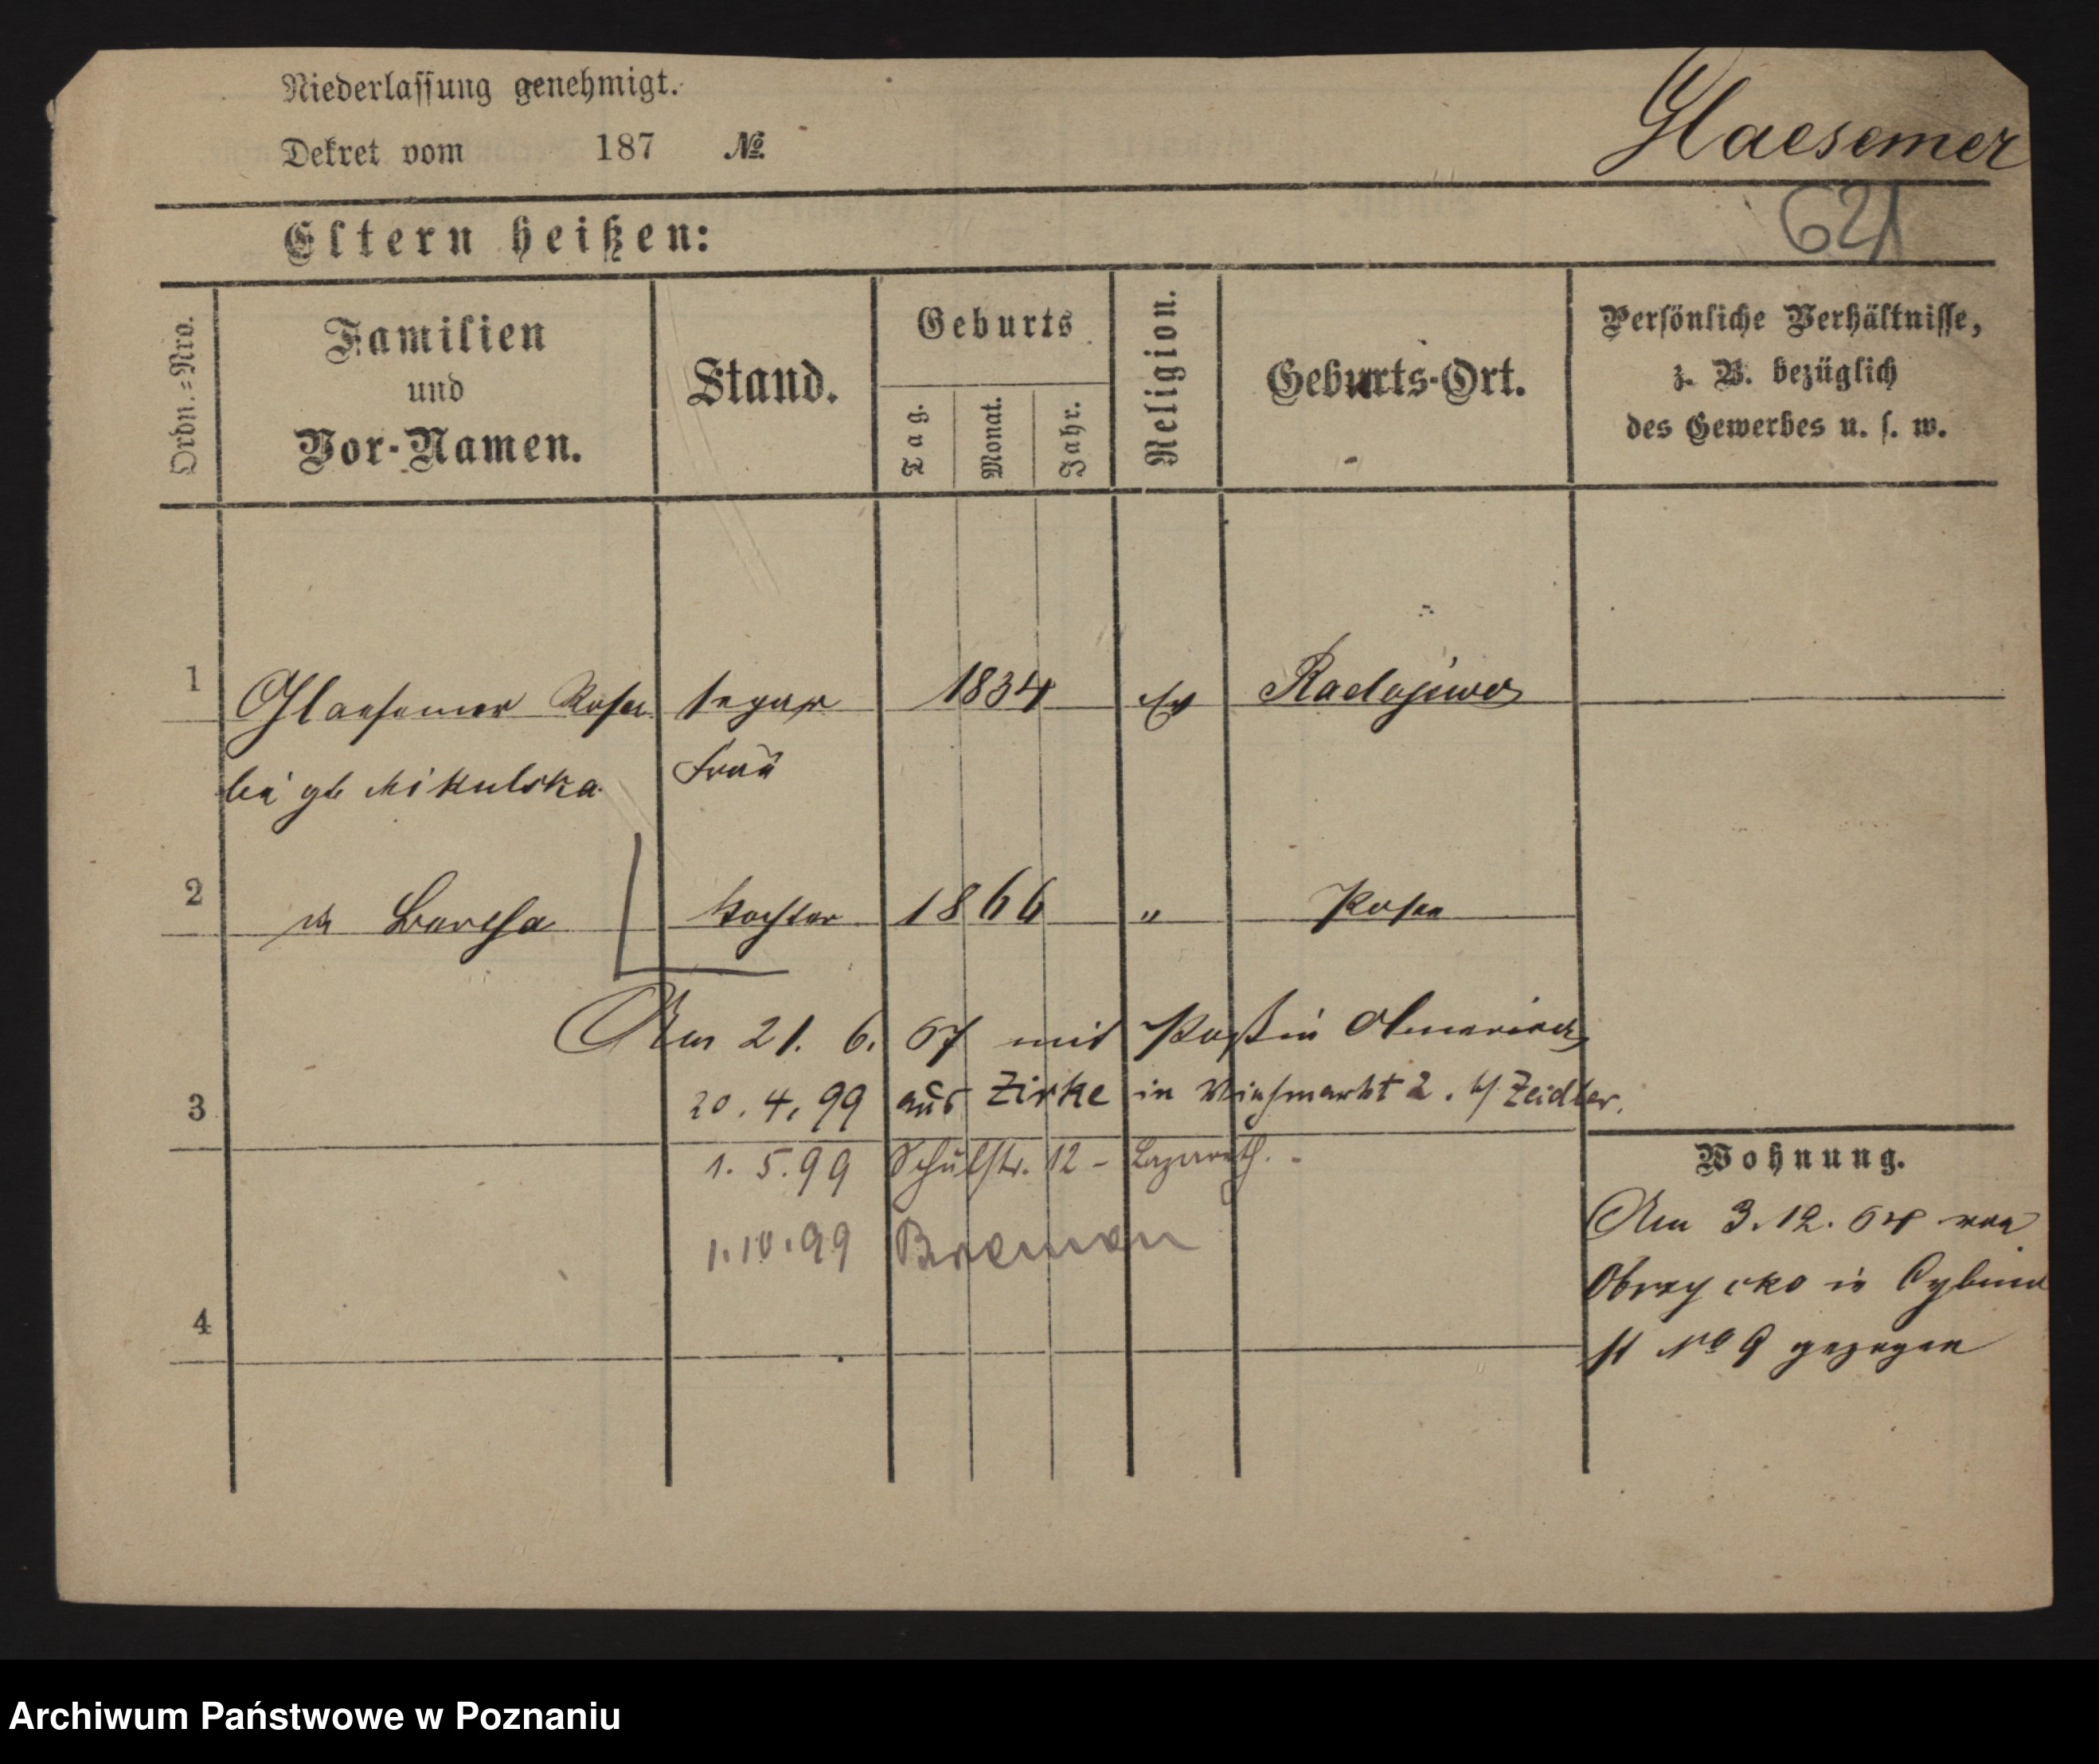 Niederlassung genehmigt.
Dekret vom 187 №
Glaesemer
621
Eltern heißen:
Ordn.=Nro.
Familien
und
Vor-Namen.
Stand.
Geburts
Tag.
Monat.
Jahr.
Religion.
Geburts-Ort.
Persönliche Verhältnisse,
z. B. bezüglich
des Gewerbes u. s. w.
1 Glaesemer Rosa separ 1834 ev Radojewo
gb Mikulska Frau
2 Bertha Tochter 1866 " Posen
Am 21. 6. 67 mit Paß in Amerika
3 20. 4. 99 aus Zirke in Viehmarkt 2. b/ Zeidler.
1. 5. 99 Schulstr. 12 - Lazareth.
1. 10. 99 Bremen
4
Wohnung.
Am 3. 12. 64 von
Obrzycko in Cybina
st No 9 gezogen
Archiwum Państwowe w Poznaniu